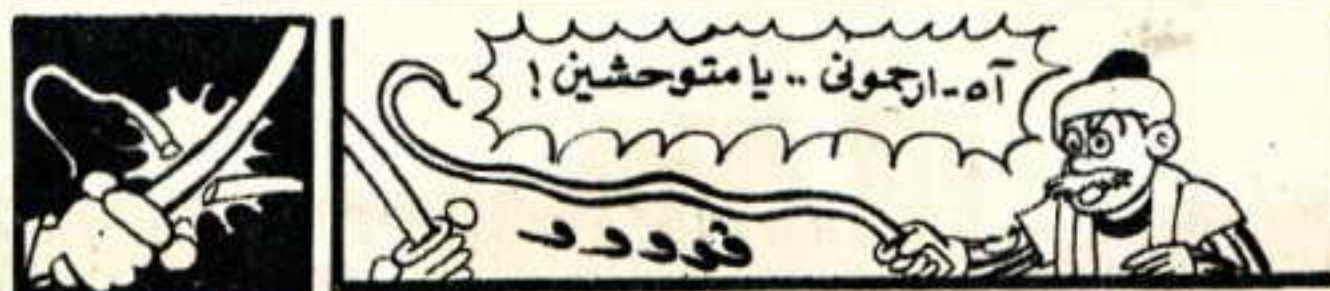 آه-ارحمونى .. يا متوحشين !
فوووو